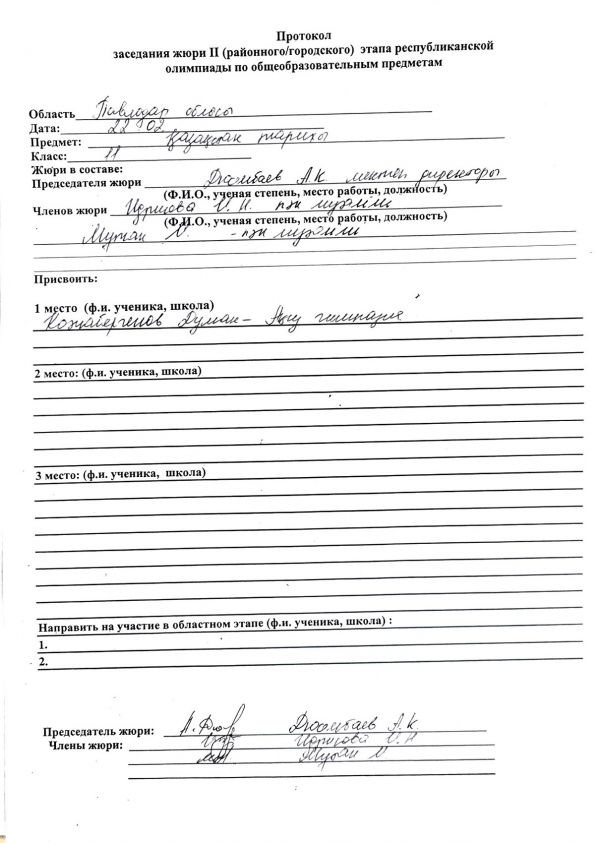 Протокол
заседания жюри II (районного/городского) этапа республиканской
олимпиады по общеобразовательным предметам
Область Павлодар облысы
Дата: 22 02
Предмет: Қазақстан тарихы
Класс: 11
Жюри в составе:
Председателя жюри А.К мектеп директоры
(Ф.И.О., ученая степень, место работы, должность)
Членов жюри Идрисова И.Н. пән мұғалімі
(Ф.И.О., ученая степень, место работы, должность)
- пән мұғалімі
Присвоить:
1 место (ф.и. ученика, школа)
Кожабергенов Думан - Ақсу гимназия
2 место: (ф.и. ученика, школа)
3 место: (ф.и. ученика, школа)
Направить на участие в областном этапе (ф.и. ученика, школа) :
1.
2.
Председатель жюри: А.К
Члены жюри: Идрисова И.Н